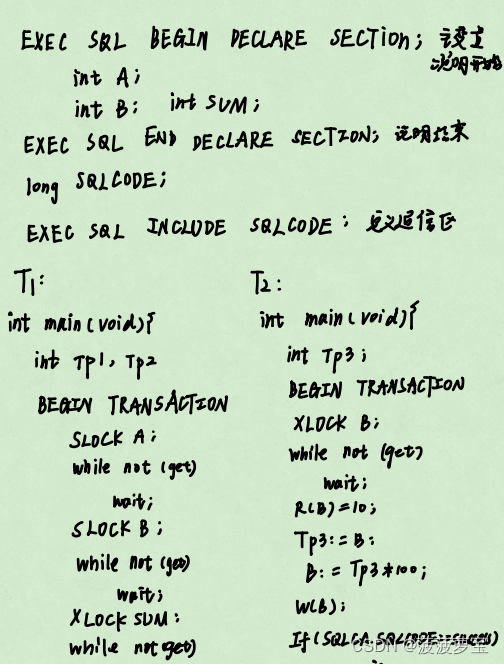 EXEC SQL BEGIN DECLARE SECTION;
说明开始
int A;
int B; int SUM;
EXEC SQL END DECLARE SECTION; 说明结束
long SQLCODE;
EXEC SQL INCLUDE SQLCODE; 定义通信区
T1:
int main(void){
int Tp1, Tp2
BEGIN TRANSACTION
SLOCK A;
while not (get)
wait;
SLOCK B;
while not (get)
wait;
XLOCK SUM:
while not (get)
T2:
int main(void){
int Tp3;
BEGIN TRANSACTION
XLOCK B;
while not (get)
wait;
R(B)=10;
Tp3:=B:
B:=Tp3*100;
W(B);
If(SQLCA.SQLCODE==success)
CSDN @波波萝宝